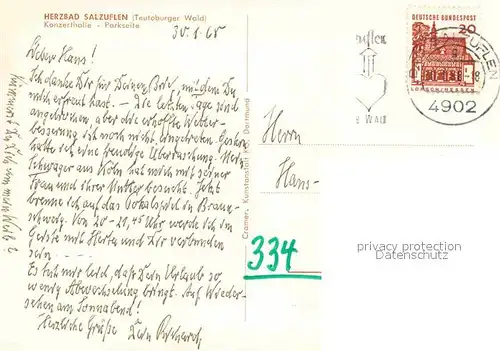 HERZBAD SALZUFLEN (Teutoburger Wald)
Konzerthalle - Parkseite
30.1.65
Lieber Hans!
Ich danke Dir für Deinen Brief, mit dem Du
mich erfreut hast. – Die letzten Tage sind
angebrochen, aber die erhoffte Wetter-
besserung ist noch nicht eingetreten. Gestern
hatte ich eine freudige Überraschung. Mein
Schwager aus Köln hat mich mit seiner
Frau und ihrer Mutter besucht. Jetzt
brenne ich auf das Pokalspiel in Braun-
schweig. Von 20-21,45 Uhr werde ich im
Geiste mit Herta und Dir verbunden
sein.
Es tut mir leid, daß Dein Urlaub so
wenig Abwechselung bringt. Auf Wieder-
sehen am Sonnabend!
Herzliche Grüße Dein
Kümmerst Du Dich um mein Weib?
Cramers Kunstanstalt KG, Dortmund
DEUTSCHE BUNDESPOST
20
LORSCH/HESSEN
4902
Herrn
Hans-
334
privacy protection watermark
© Delcampe Luxembourg SA